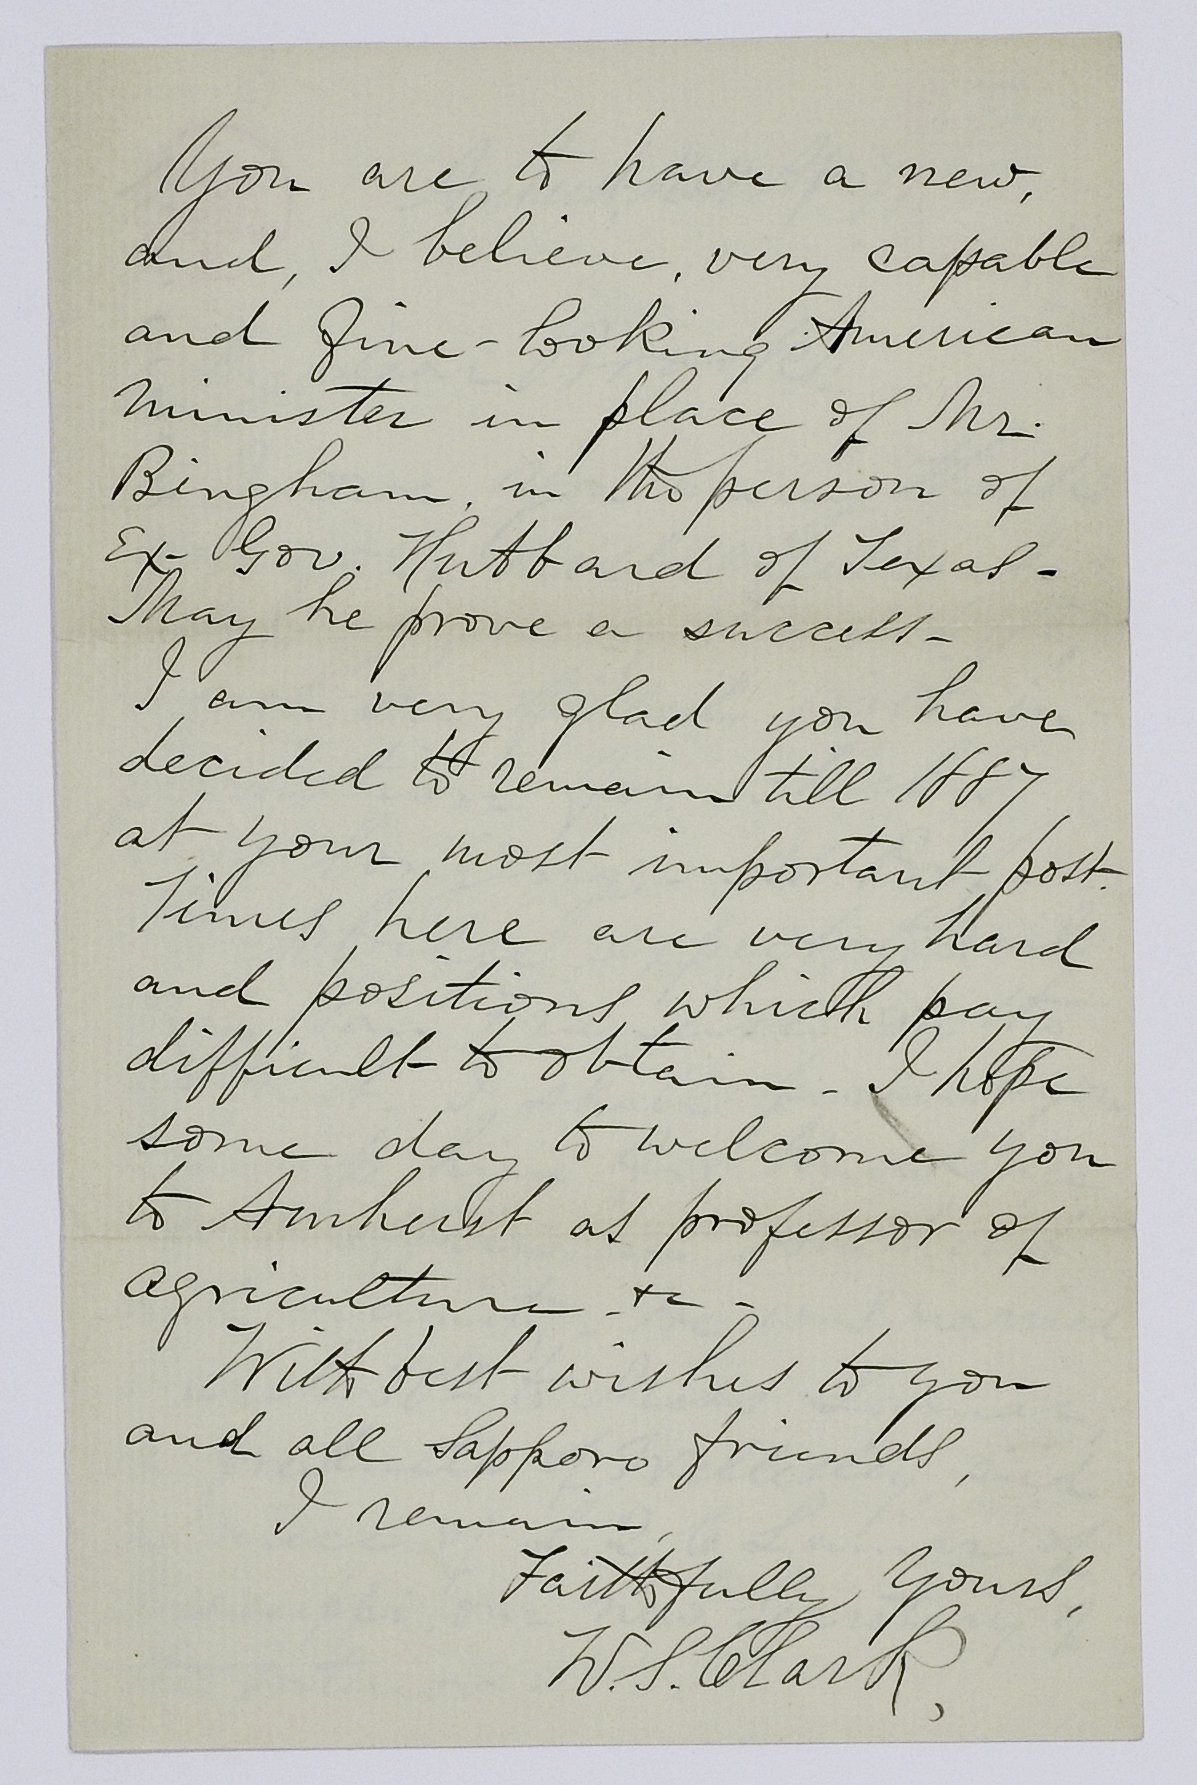 You are to have a new,
and, I believe, very capable
and fine-looking American
minister in place of Mr.
Bingham, in the person of
Ex-Gov. Hubbard of Texas-
May he prove a success-
I am very glad you have
decided to remain till 1887
at your most important post.
Times here are very hard
and positions which pay
difficult to obtain - I hope
some day to welcome you
to Amherst as professor of
agriculture &c -
With best wishes to you
and all Sapporo friends,
I remain,
Faithfully Yours,
W. S. Clark,